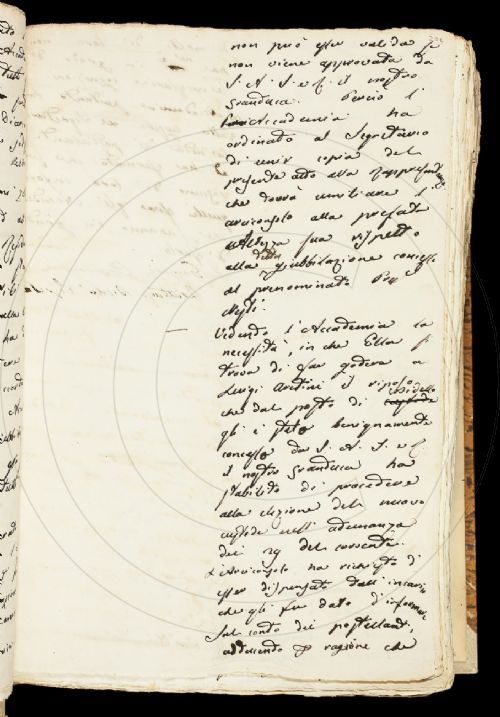 non può esser valida se
non viene approvata da
S. A. S. e R. il nostro
Granduca. Perciò l'
Accademia ha
ordinato al Segretario
di unir copia del
presente atto alla Rappresentanza
che dovrà umiliare l'
arciconsolo alla prefata
Altezza sua rispetto
alla detta giubbilazione concessa
al prenominato
Vedendo l'Accademia la
necessità, in che Ella si
trova di far godere a
Luigi Aretini il riposo
che dal posto di Bidello custode
gli è stato benignamente
concesso da S. A. I. e R.
il nostro Granduca ha
stabilito di procedere
alla elezione del nuovo
custode nell'adunanza
dei 29 del corrente.
L'Arciconsolo ha richiesto d'
esser dispensato dall'incarico
che gli fu dato d'informare
sul conto dei postulanti,
adducendo per ragione che